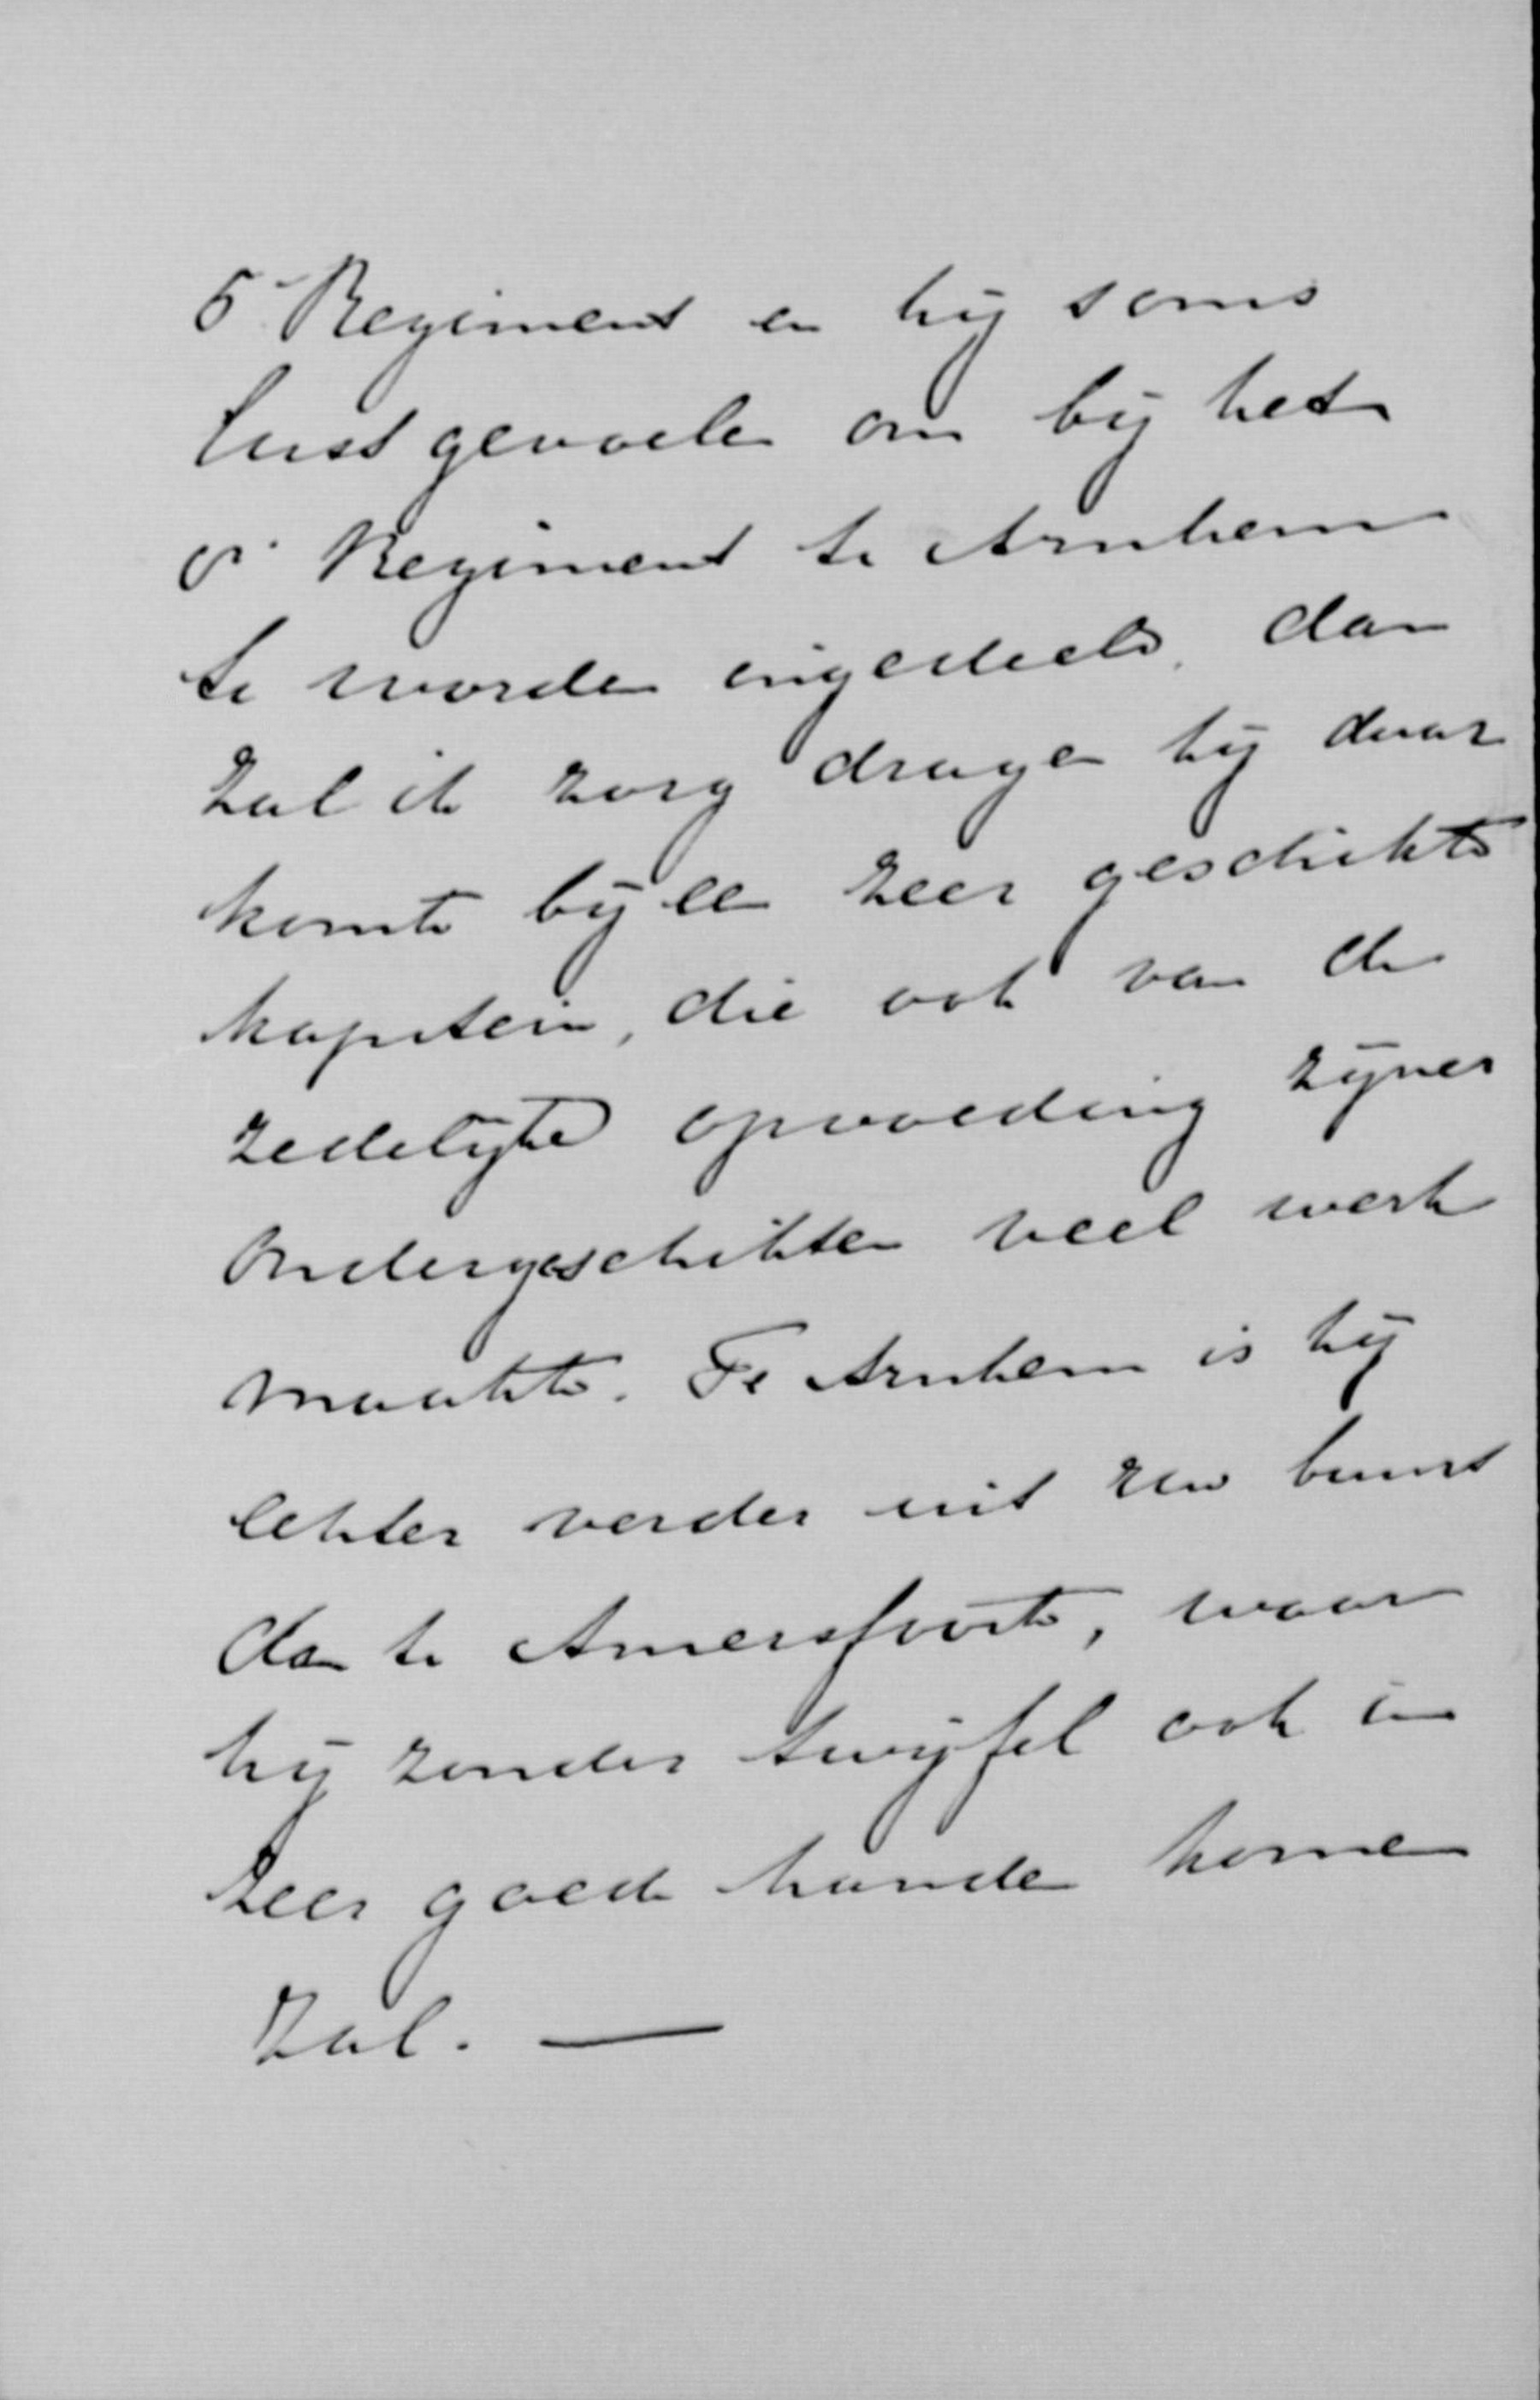 5e Regiment en hij soms
lust gevoelen om bij het
8e Regiment te Arnhem
te worden ingedeeld, dan
zal ik zorg dragen hij daar
komt bij een zeer geschikt
kapitein, die ook van de
zedelijke opvoeding zijner
ondergeschikten veel werk
maakt. Te Arnhem is hij
echter verder uit Uw buurt
dan te Amersfoort, waar
hij zonder twijfel ook in
zeer goede handen komen
zal. —